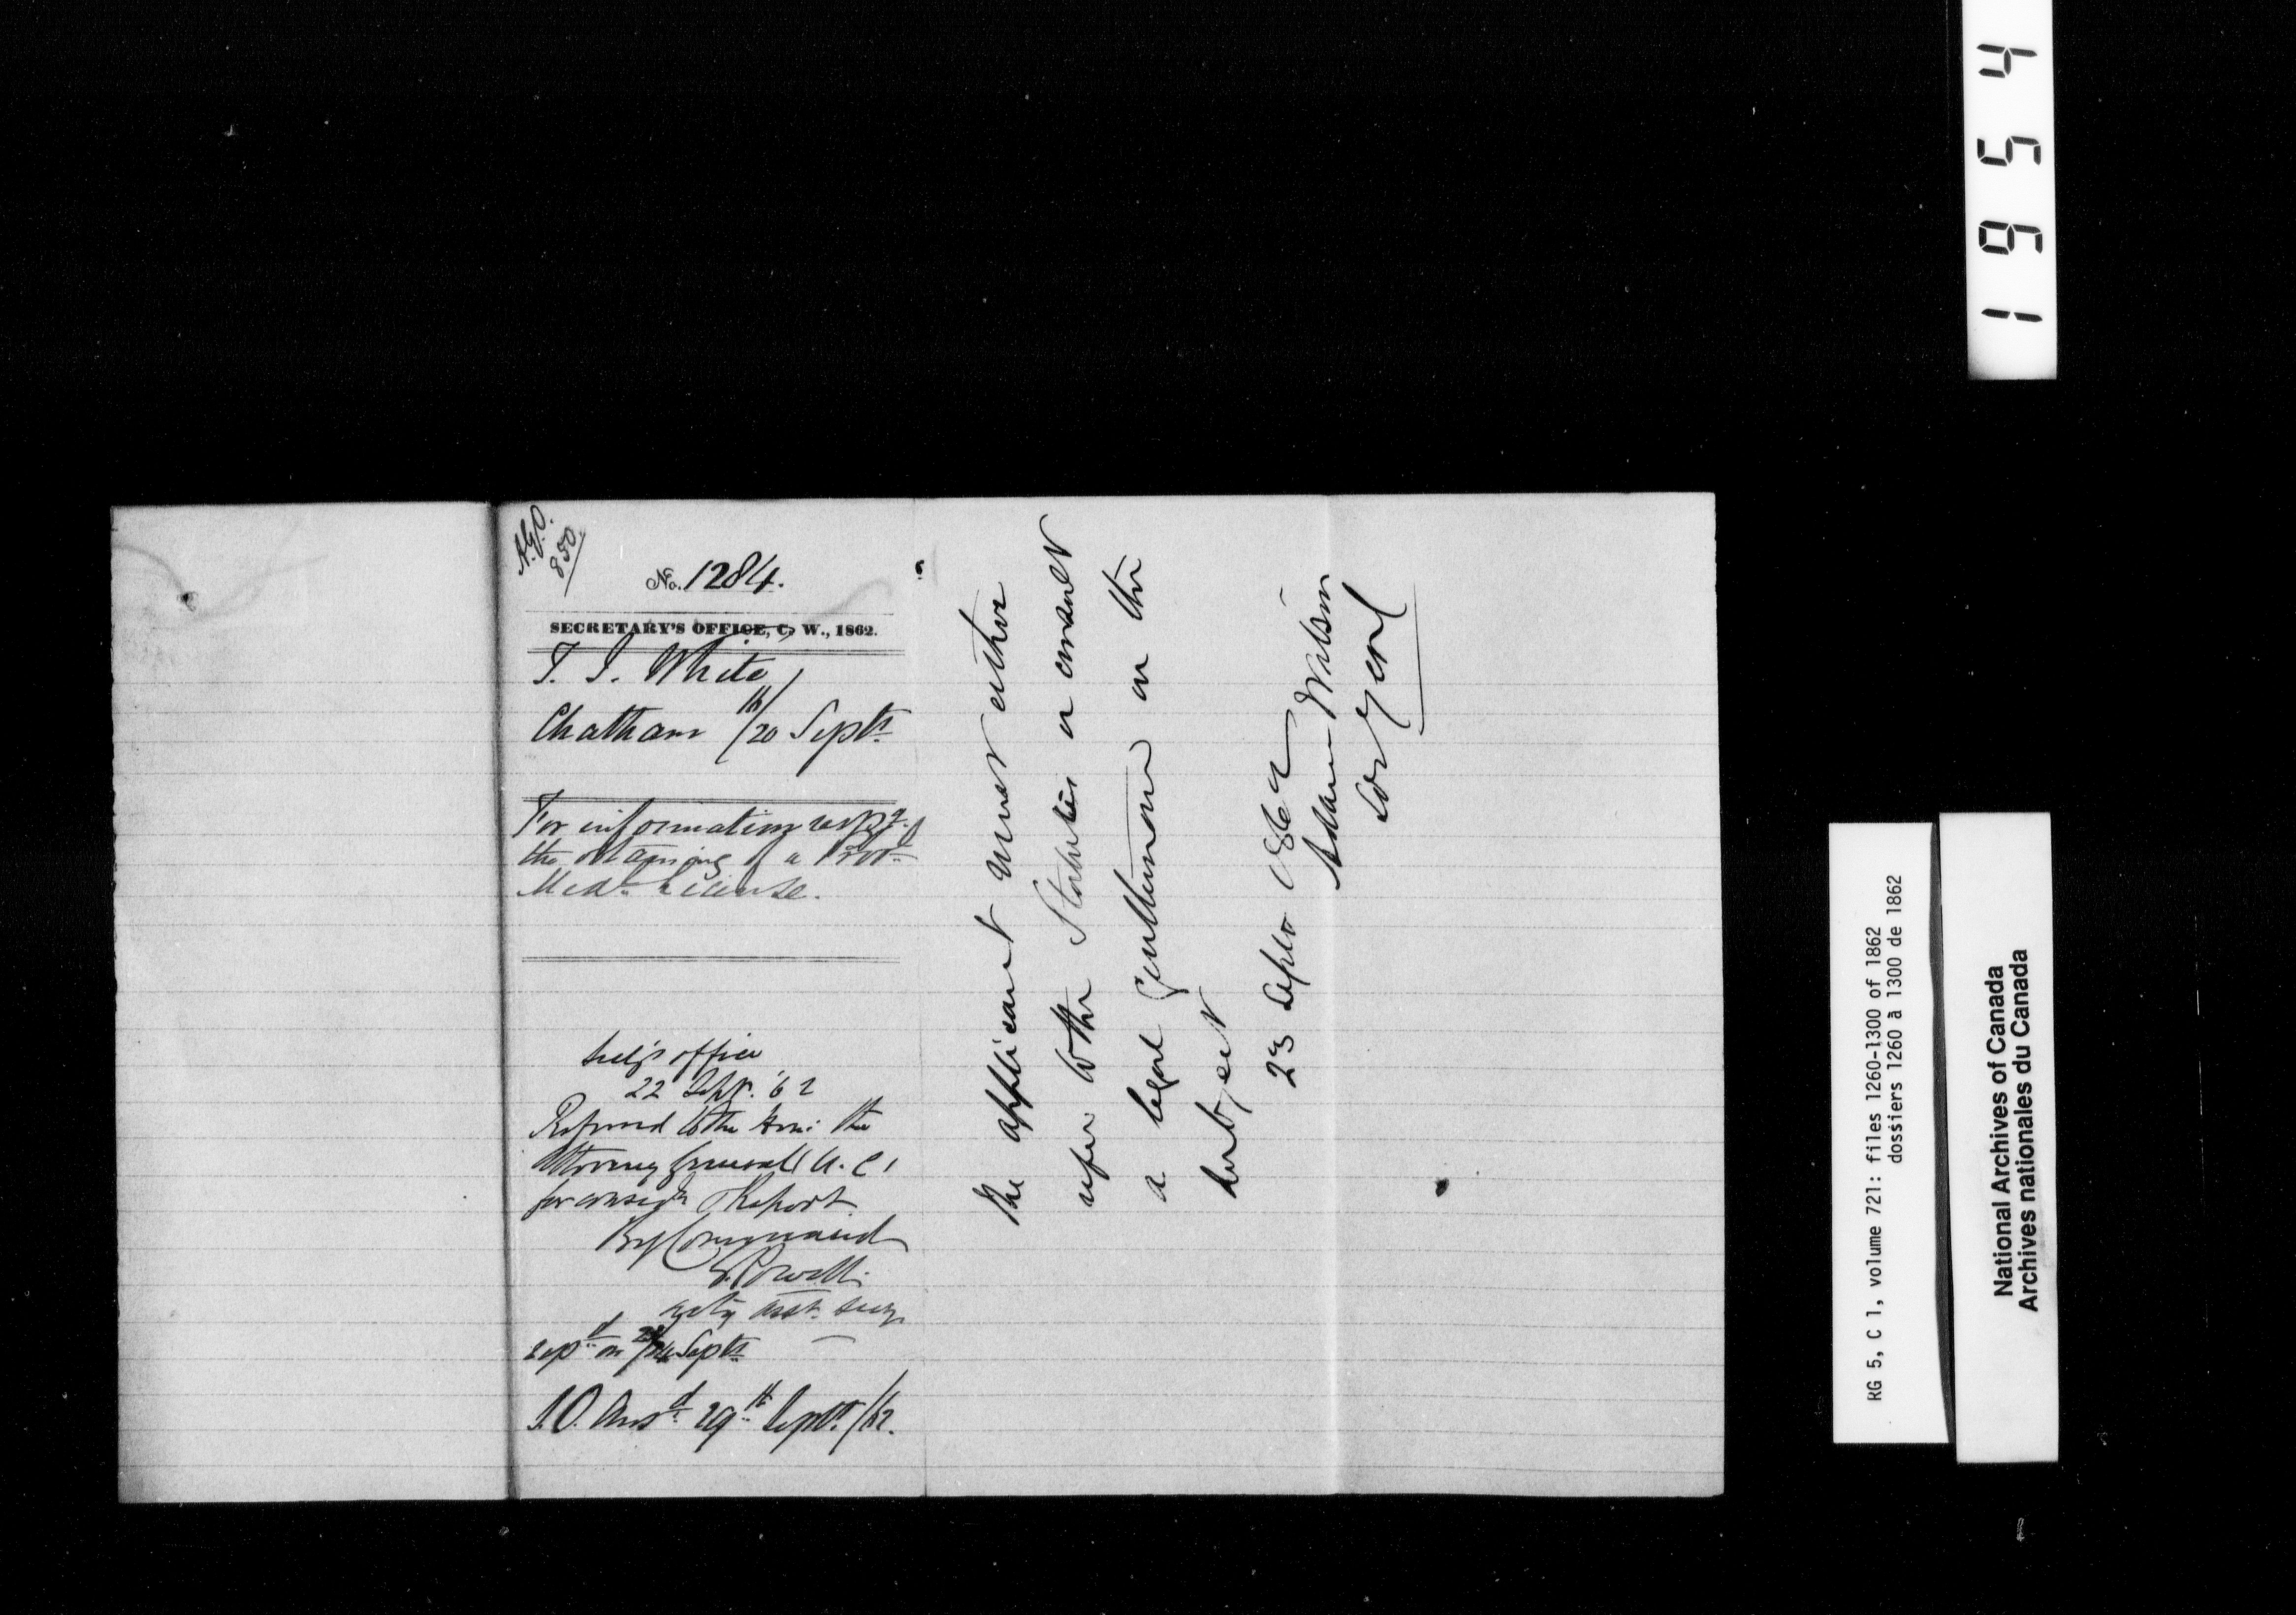 A.G.O.
850
No. 1284.
SECRETARY'S OFFICE, C. W., 1862.
T. J. White
Chatham 18/20 Septr.
For information respg.
the obtaining of a Provl.
Medl. License.
Secy's office
22 Septr. '62
Referred to the Hon: the
Attorney General U. C.
for consid. & Report
By Command
E. Powell
actg asst. Secy
Repd. on 24 Septr.
S.O. Ansd. 29th Septr. /62.
The applicant must either
refer to the Statutes or consult
a legal Gentleman on the
subject
23 Septr 1862
Adam Wilson
Sol. Genl
1954
RG 5, C 1, volume 721: files 1260-1300 of 1862
dossiers 1260 à 1300 de 1862
National Archives of Canada
Archives nationales du Canada